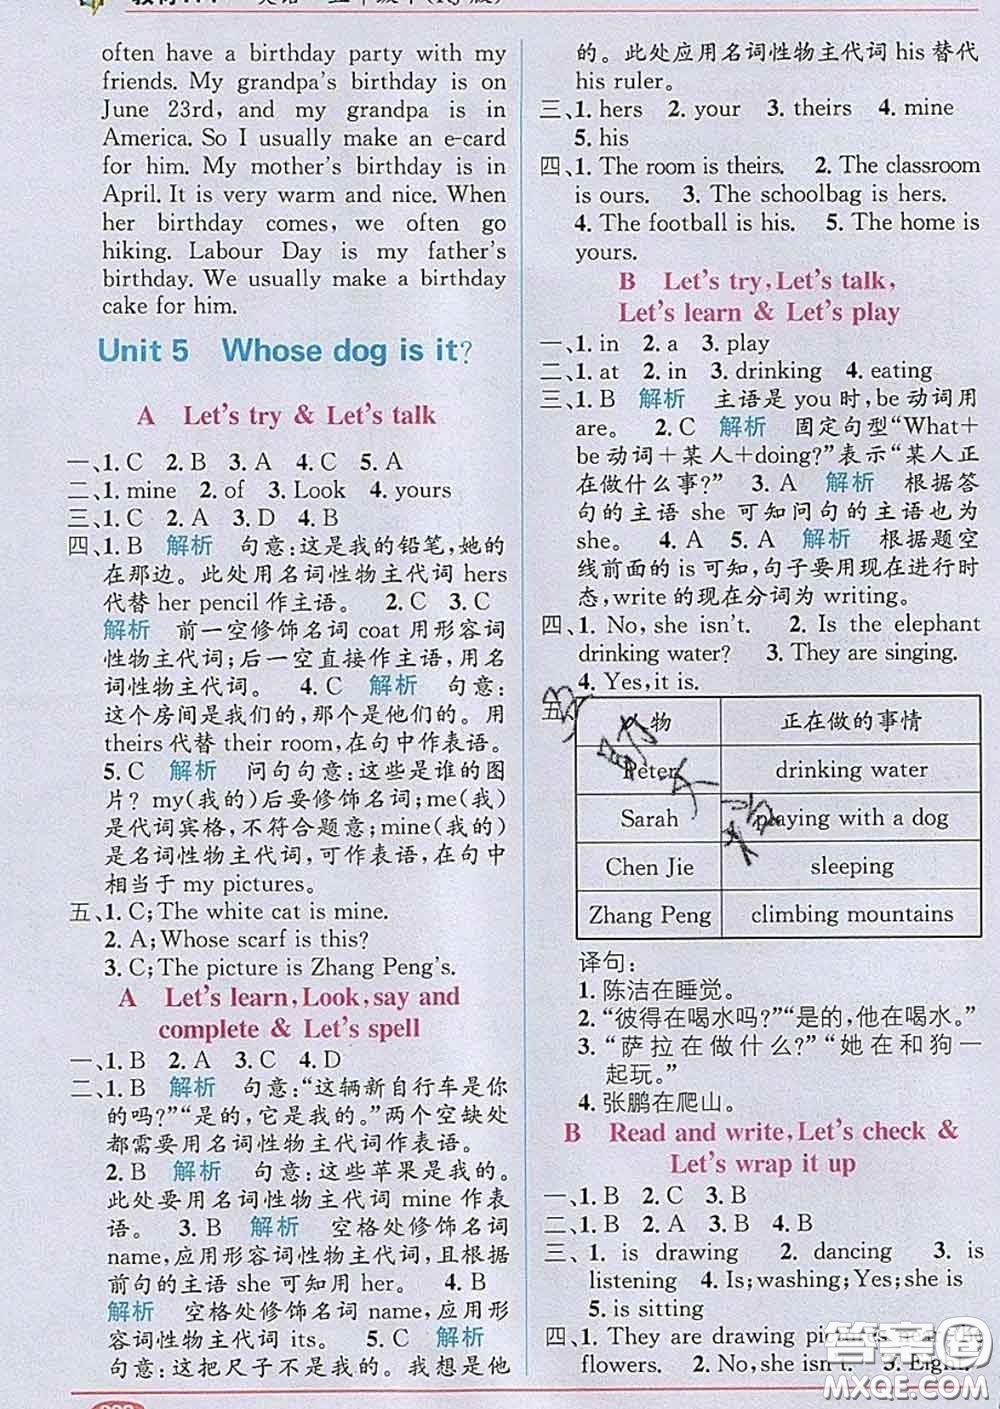 often have a birthday party with my
friends. My grandpa's birthday is on
June 23rd, and my grandpa is in
America. So I usually make an e-card
for him. My mother's birthday is in
April. It is very warm and nice. When
her birthday comes, we often go
hiking. Labour Day is my father's
birthday. We usually make a birthday
cake for him.
Unit 5 Whose dog is it?
A Let's try & Let's talk
一、1. C 2. B 3. A 4. C 5. A
二、1. mine 2. of 3. Look 4. yours
三、1. C 2. A 3. D 4. B
四、1. B 解析 句意:这是我的铅笔,她的
在那边。此处用名词性物主代词 hers
代替 her pencil 作主语。 2. C 3. C
解析 前一空修饰名词 coat 用形容词
性物主代词;后一空直接作主语,用名
词性物主代词。 4. C 解析 句意:
这个房间是我们的,那个是他们的。用
theirs 代替 their room,在句中作表语。
5. C 解析 问句句意:这些是谁的图
片? my(我的)后要修饰名词;me(我)
是代词宾格,不符合题意;mine(我的)
是名词性物主代词,可作表语,在句中
相当于 my pictures。
五、1. C;The white cat is mine.
2. A;Whose scarf is this?
3. C;The picture is Zhang Peng's.
A Let's learn, Look, say and
complete & Let's spell
一、1. B 2. A 3. C 4. D
二、1. B 解析 句意:“这辆新自行车是你
的吗?”“是的,它是我的。”两个空缺处
都需要用名词性物主代词作表语。
2. B 解析 句意:这些苹果是我的。
此处要用名词性物主代词 mine 作表
语。 3. B 解析 空格处修饰名词
name,应用形容词性物主代词,且根据
前句的主语 she 可知用 her。 4. B
解析 空格处修饰名词 name,应用形
容词性物主代词 its。 5. C 解析
句意:这把尺子不是我的。我想是他
的。此处应用名词性物主代词 his 替代
his ruler。
三、1. hers 2. your 3. theirs 4. mine
5. his
四、1. The room is theirs. 2. The classroom
is ours. 3. The schoolbag is hers.
4. The football is his. 5. The home is
yours.
B Let's try, Let's talk,
Let's learn & Let's play
一、1. in 2. a 3. play
二、1. at 2. in 3. drinking 4. eating
三、1. B 解析 主语是 you 时,be 动词用
are。 2. C 解析 固定句型“What+
be 动词+某人+doing?”表示“某人正
在做什么事?” 3. A 解析 根据答
句的主语 she 可知问句的主语也为
she。 4. A 5. A 解析 根据题空
线前面的 is 可知,句子要用现在进行时
态,write 的现在分词为 writing。
四、1. No, she isn't. 2. Is the elephant
drinking water? 3. They are singing.
4. Yes, it is.
五、
人物 正在做的事情
Peter drinking water
Sarah playing with a dog
Chen Jie sleeping
Zhang Peng climbing mountains
译句:
1. 陈洁在睡觉。
2. “彼得在喝水吗?”“是的,他在喝水。”
3. “萨拉在做什么?”“她在和狗一
起玩。”
4. 张鹏在爬山。
B Read and write, Let's check &
Let's wrap it up
一、1. B 2. C 3. B
二、1. B 2. A 3. B 4. B
三、1. is drawing 2. dancing 3. is
listening 4. Is;washing;Yes;she is
5. is sitting
四、1. They are drawing pictures
flowers. 2. No, she isn't. 3. Eight.
答案圈
MXQE.COM